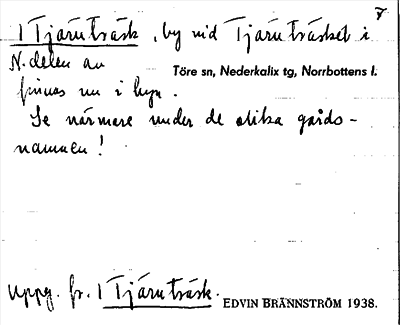 1 Tjärnträsk, by vid Tjärnträsket i
N. delen av
Töre sn, Nederkalix tg, Norrbottens l.
finnes nu i byn.
Se närmare under de olika gårds-
namnen!
Uppg. fr. 1 Tjärnträsk.
EDVIN BRÄNNSTRÖM 1938.